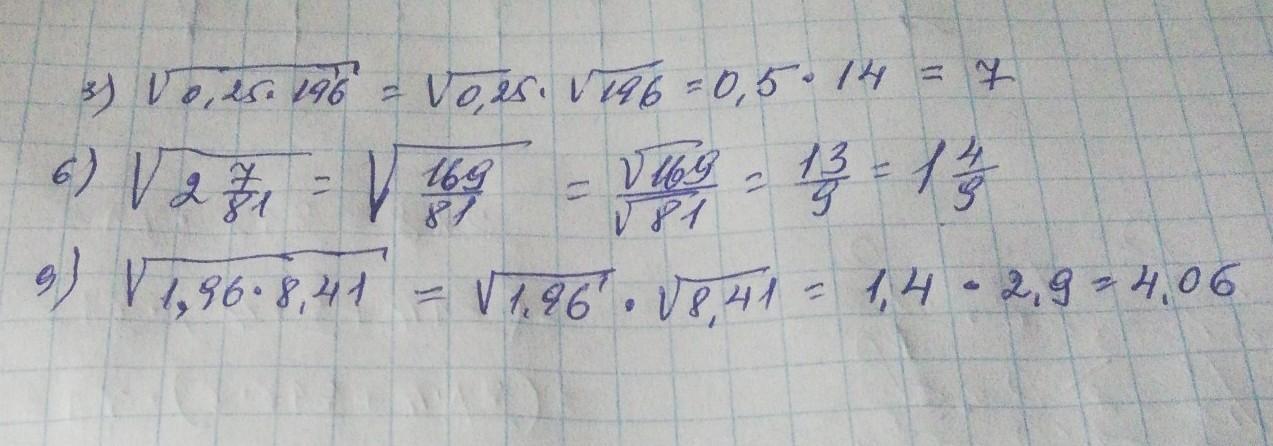 3) √0,25·196 = √0,25 · √196 = 0,5 · 14 = 7
6) √2 7/81 = √169/81 = √169/√81 = 13/9 = 1 4/9
9) √1,96·8,41 = √1,96 · √8,41 = 1,4 · 2,9 = 4,06